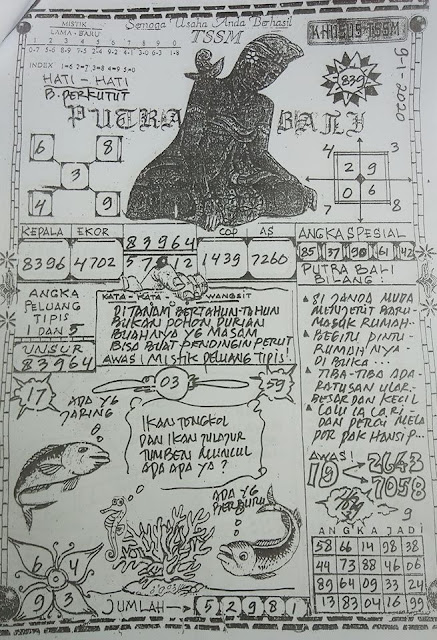 MISTIK
LAMA - BARU
Semoga Usaha Anda Berhasil
TSSM
KHUSUS-TSSM
1 2 3 4 5 6 7 8 9 0
INDEX 1=6 2=7 3=8 4=9 5=0
9-1-2020
839
HATI - HATI
B. PERKUTUT
PUTRA BALI
6 8
3
4 9
4 3
2 9
0 6
7 8
KEPALA EKOR
8396 4702
83964
COP AS
1439 7260
ANGKA SPESIAL
85 37 90 61 42
PUTRA BALI
BILANG:
ANGKA
PELUANG
TIPIS
1 DAN 5
UNSUR
83964
KATA - KATA WANGSIT
DI TANAM BERTAHUN-TAHUN
BUKAN POHON DURIAN
BUAHNYA YG MASAM
BISA BUAT PENDINGIN PERUT
AWAS! MISTIK PELUANG TIPIS!
SI JANDA MUDA
MENJERIT BARU
MASUK RUMAH..
BEGITU PINTU
RUMAH NYA
DI BUKA...
TIBA-TIBA ADA
RATUSAN ULAR
BESAR DAN KECIL
LALU IA LARI
DAN PERGI MELA
POR PAK HANSIP...
17
03
59
ADA YG
JARING
IKAN TONGKOL
DAN IKAN JULUJUR
TUMBEN MUNCUL
ADA APA YA ?
ADA YG
PEMBURU
AWAS!
19
2643
7058
9
ANGKA JADI
58 66 14 98 38
44 73 88 46 06
89 64 09 33 24
13 83 04 16 99
6 4
9 3
JUMLAH → 5 2 9 8 1